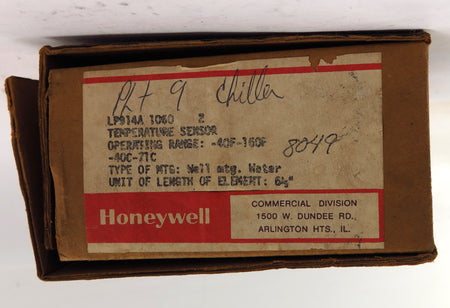 Plt 9 Chiller
LP914A 1060 2
TEMPERATURE SENSOR
OPERATING RANGE: -40F-160F
-40C-71C
8049
TYPE OF MTG: Well mtg. Water
UNIT OF LENGTH OF ELEMENT: 6½"
Honeywell
COMMERCIAL DIVISION
1500 W. DUNDEE RD.,
ARLINGTON HTS., IL.